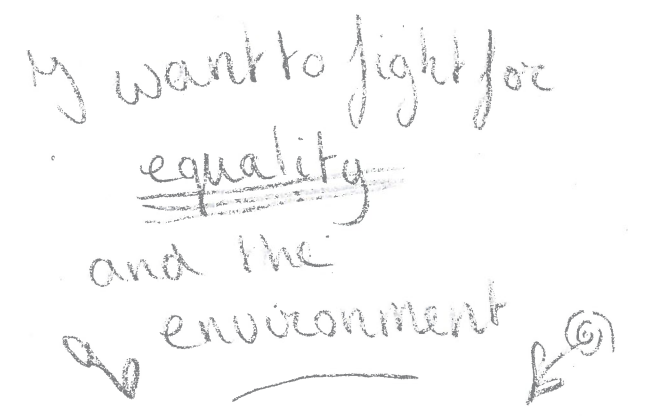 I want to fight for
equality
and the
environment